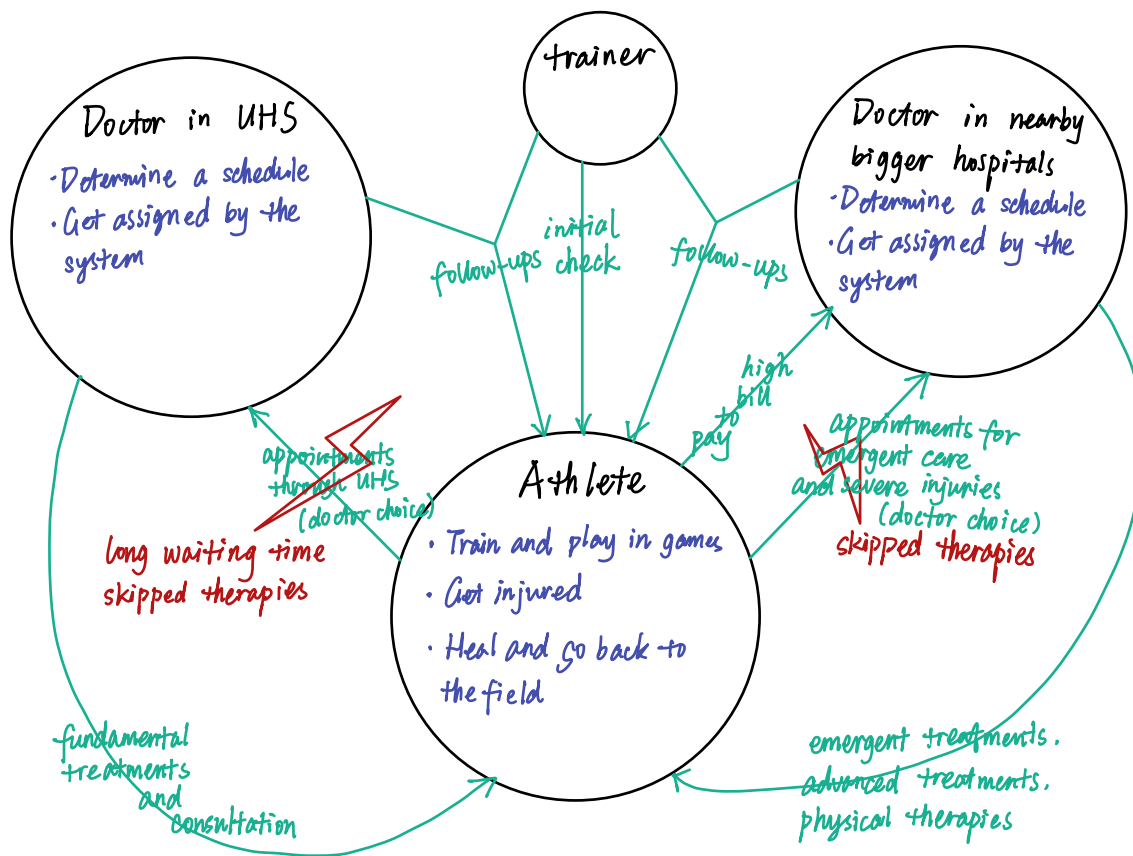 trainer
Doctor in UHS
· Determine a schedule
· Get assigned by the
system
Doctor in nearby
bigger hospitals
· Determine a schedule
· Get assigned by the
system
follow-ups
initial
check
follow-ups
high
bill
to
pay
appointments
through UHS
(doctor choice)
long waiting time
skipped therapies
appointments for
emergent care
and severe injuries
(doctor choice)
skipped therapies
Athlete
· Train and play in games
· Get injured
· Heal and go back to
the field
fundamental
treatments
and
consultation
emergent treatments.
advanced treatments.
physical therapies